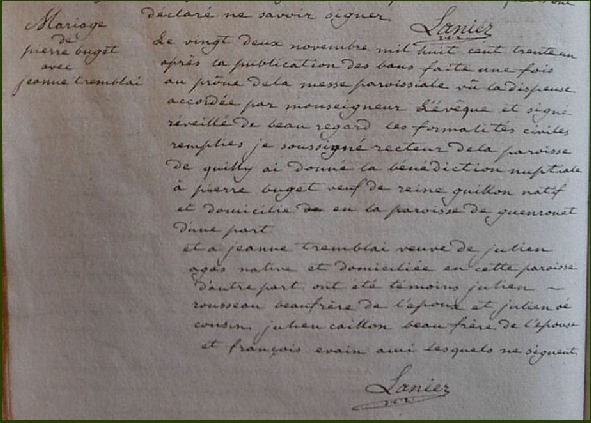 déclaré ne savoir signer
Lanier
Mariage
de
pierre buget
avec
jeanne tremblai
Le vingt deux novembre mil huit cent trente un
après la publication des bans faite une fois
au prône dela messe paroissiale vû la dispense
accordée par monseigneur L'évêque et signé
réveillé de beau regard les formalités civiles
remplies je soussigné recteur dela paroisse
de quilly ai donné la bénédiction nuptiale
à pierre buget veuf de reine guillon natif
et domicilié de en la paroisse de guenrouet
d'une part
et a jeanne tremblai veuve de julien
agas native et domiciliée en cette paroisse
d'autre part ont été témoins julien
rousseau beaufrère de l'epoux et julien
cousin, julien caillon beau frère de l'epouse
et françois evain ami lesquels ne signent
Lanier